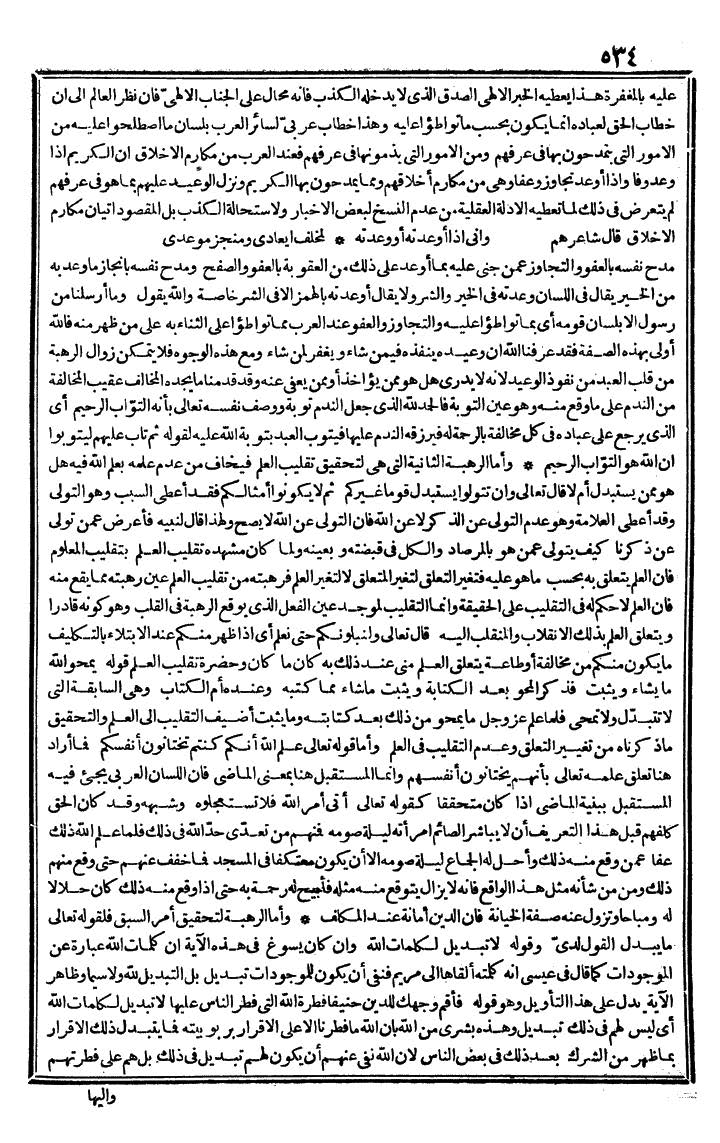 ٥٣٤
عليه بالمغفرة هذا يعطيه الخبر الالهى الصدق الذى لا يدخله الكذب فانه محال على الجناب الالهىّ فان نظر العالم الى ان
خطاب الحق لعباده انما يكون بحسب ما تواطؤا عليه وهذا خطاب عربىّ لسائر العرب بلسان ما اصطلحوا عليه من
الامور التى يتمدحون بها فى عرفهم ومن الامور التى يذمونها فى عرفهم فعند العرب من مكارم الاخلاق ان الكريم اذا
وعد وفا واذا أوعد تجاوز وعفا وهى من مكارم أخلاقهم ومما يمدحون بها الكريم ونزل الوعيد عليهم بما هو فى عرفهم
لم يتعرض فى ذلك لما تعطيه الادلة العقلية من عدم النسخ لبعض الاخبار ولاستحالة الكذب بل المقصود اتيان مكارم
الاخلاق قال شاعرهم وانى اذا أوعدته أو وعدته * لمخلف ايعادى ومنجز موعدى
مدح نفسه بالعفو والتجاوز عمن جنى عليه بما أوعد على ذلك من العقوبة بالعفو والصفح ومدح نفسه بانجاز ما وعد به
من الخير يقال فى اللسان وعدته فى الخير والشر ولا يقال أوعدته بالهمز الا فى الشر خاصة والله يقول وما أرسلنا من
رسول الا بلسان قومه أى بما تواطؤا عليه والتجاوز والعفو عند العرب مما تواطؤا على الثناء به على من ظهر منه فالله
أولى بهذه الصفة فقد عرفنا الله ان وعيده ينفذه فيمن شاء ويغفر لمن شاء ومع هذه الوجوه فلا يتمكن زوال الرهبة
من قلب العبد من نفوذ الوعيد لانه لا يدرى هل هو ممن يؤاخذ أو ممن يعفى عنه وقد قدمنا ما يجده المخالف عقيب المخالفة
من الندم على ما وقع منه وهو عين التوبة فالحمد لله الذى جعل الندم توبة ووصف نفسه تعالى بأنه التوّاب الرحيم أى
الذى يرجع على عباده فى كل مخالفة بالرحمة له فيرزقه الندم عليها فيتوب العبد بتوبة الله عليه لقوله ثم تاب عليهم ليتوبوا
ان الله هو التوّاب الرحيم * وأما الرهبة الثانية التى هى لتحقيق تقليب العلم فيخاف من عدم علمه بعلم الله فيه هل
هو ممن يستبدل أم لا قال تعالى وان تتولوا يستبدل قوما غيركم ثم لا يكونوا أمثالكم فقد أعطى السبب وهو التولى
وقد أعطى العلامة وهو عدم التولى عن الذكر لا عن الله فان التولى عن الله لا يصح ولهذا قال لنبيه فأعرض عمن تولى
عن ذكرنا كيف يتولى عمن هو بالمرصاد والكل فى قبضته وبعينه ولما كان مشهده تقليب العلم بتقليب المعلوم
فان العلم يتعلق به بحسب ما هو عليه فتغير التعلق لتغير المتعلق لا لتغير العلم فرهبته من تقليب العلم عين رهبته مما يقع منه
فان العلم لا حكم له فى التقليب على الحقيقة وانما التقليب لموجد عين الفعل الذى يوقع الرهبة فى القلب وهو كونه قادرا
ويتعلق العلم بذلك الانقلاب والمنقلب اليه قال تعالى ولنبلونكم حتى نعلم أى اذا ظهر منكم عند الابتلاء بالتكليف
ما يكون منكم من مخالفة أو طاعة يتعلق العلم منى عند ذلك به كان ما كان وحضرة تقليب العلم قوله يمحو الله
ما يشاء ويثبت فذكر المحو بعد الكتابة ويثبت ما شاء مما كتبه وعنده أم الكتاب وهى السابقة التى
لا تتبدّل ولا تمحى فلما علم عز وجل ما يمحو من ذلك بعد كتابته وما يثبت أضيف التقليب الى العلم والتحقيق
ما ذكرناه من تغيير التعلق وعدم التقليب فى العلم وأما قوله تعالى علم الله أنكم كنتم تختانون أنفسكم فما أراد
هنا تعلق علمه تعالى بأنهم يختانون أنفسهم وانما المستقبل هنا بمعنى الماضى فان اللسان العربى يجىء فيه
المستقبل ببنية الماضى اذا كان متحققا كقوله تعالى أتى أمر الله فلا تستعجلوه وشبهه وقد كان الحق
كلفهم قبل هذا التعريف أن لا يباشر الصائم امرأته ليلة صومه فمنهم من تعدّى حدّ الله فى ذلك فلما علم الله ذلك
عفا عمن وقع منه ذلك وأحل له الجماع ليلة صومه الا أن يكون معتكفا فى المسجد فما خفف عنهم حتى وقع منهم
ذلك ومن من شأنه مثل هذا الواقع فانه لا يزال يتوقع منه مثله فأبيح له رحمة به حتى اذا وقع منه ذلك كان حلالا
له ومباحا وتزول عنه صفة الخيانة فان الدين أمانة عند المكلف * وأما الرهبة لتحقيق أمر السبق فلقوله تعالى
ما يبدل القول لدىّ وقوله لا تبديل لكلمات الله وان كان يسوغ فى هذه الآية ان كلمات الله عبارة عن
الموجودات كما قال فى عيسى انه كلمته ألقاها الى مريم فنفى أن يكون للموجودات تبديل بل التبديل لله ولا سيما وظاهر
الآية يدل على هذا التأويل وهو قوله فأقم وجهك للدين حنيفا فطرة الله التى فطر الناس عليها لا تبديل لكلمات الله
أى ليس لهم فى ذلك تبديل وهذه بشرى من الله بان الله ما فطرنا الا على الاقرار بربوبيته فما يتبدل ذلك الاقرار
بما ظهر من الشرك بعد ذلك فى بعض الناس لان الله نفى عنهم أن يكون لهم تبديل فى ذلك بل هم على فطرتهم
واليها